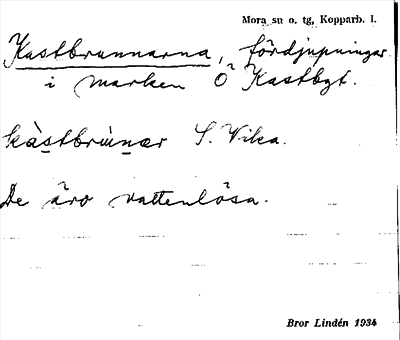 Mora sn o. tg, Kopparb. l.
Kastbrunnarna, fördjupningar
i marken Ö Kastbgt.
kàstbrùnær S. Vika.
De äro vattenlösa.
Bror Lindén 1934